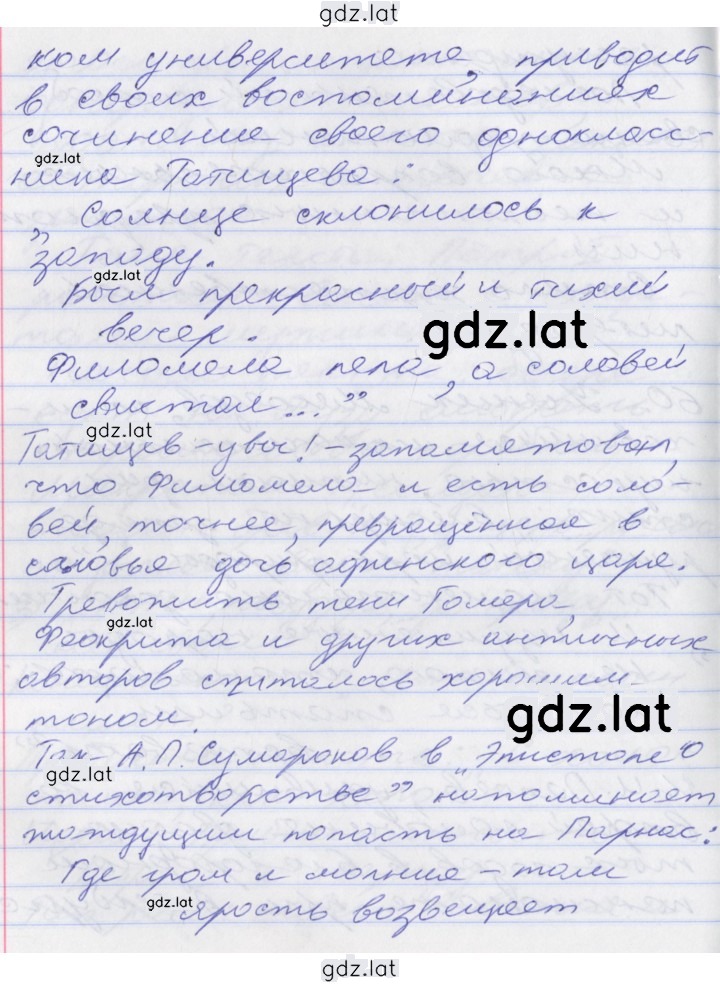 gdz.lat
ком университете, приводит
в своих воспоминаниях
сочинение своего однокласс-
gdz.lat
ника Татищева:
„Солнце склонилось к
западу.
gdz.lat
Был прекрасный и тихий
вечер.
gdz.lat
Филомела пела, а соловей
свистал..."
gdz.lat
Татищев - увы! - запамятовал,
что Филомела и есть соло-
вей, точнее, превращённая в
соловья дочь афинского царя.
Тревожить тени Гомера,
gdz.lat
Феокрита и других античных
авторов считалось хорошим
тоном.
gdz.lat
Так А.П. Сумароков в „Эпистоле о
gdz.lat
стихотворстве" напоминает
жаждущим попасть на Парнас:
Где гром и молния - там
gdz.lat
ярость возвещает
gdz.lat